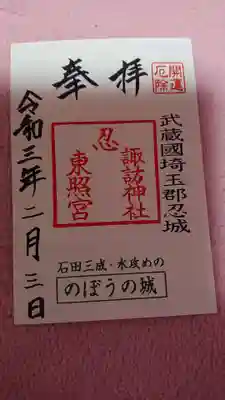 開運
厄除
奉拝
武蔵國埼玉郡忍城
忍
諏訪神社
東照宮
令和三年二月三日
石田三成・水攻めの
のぼうの城